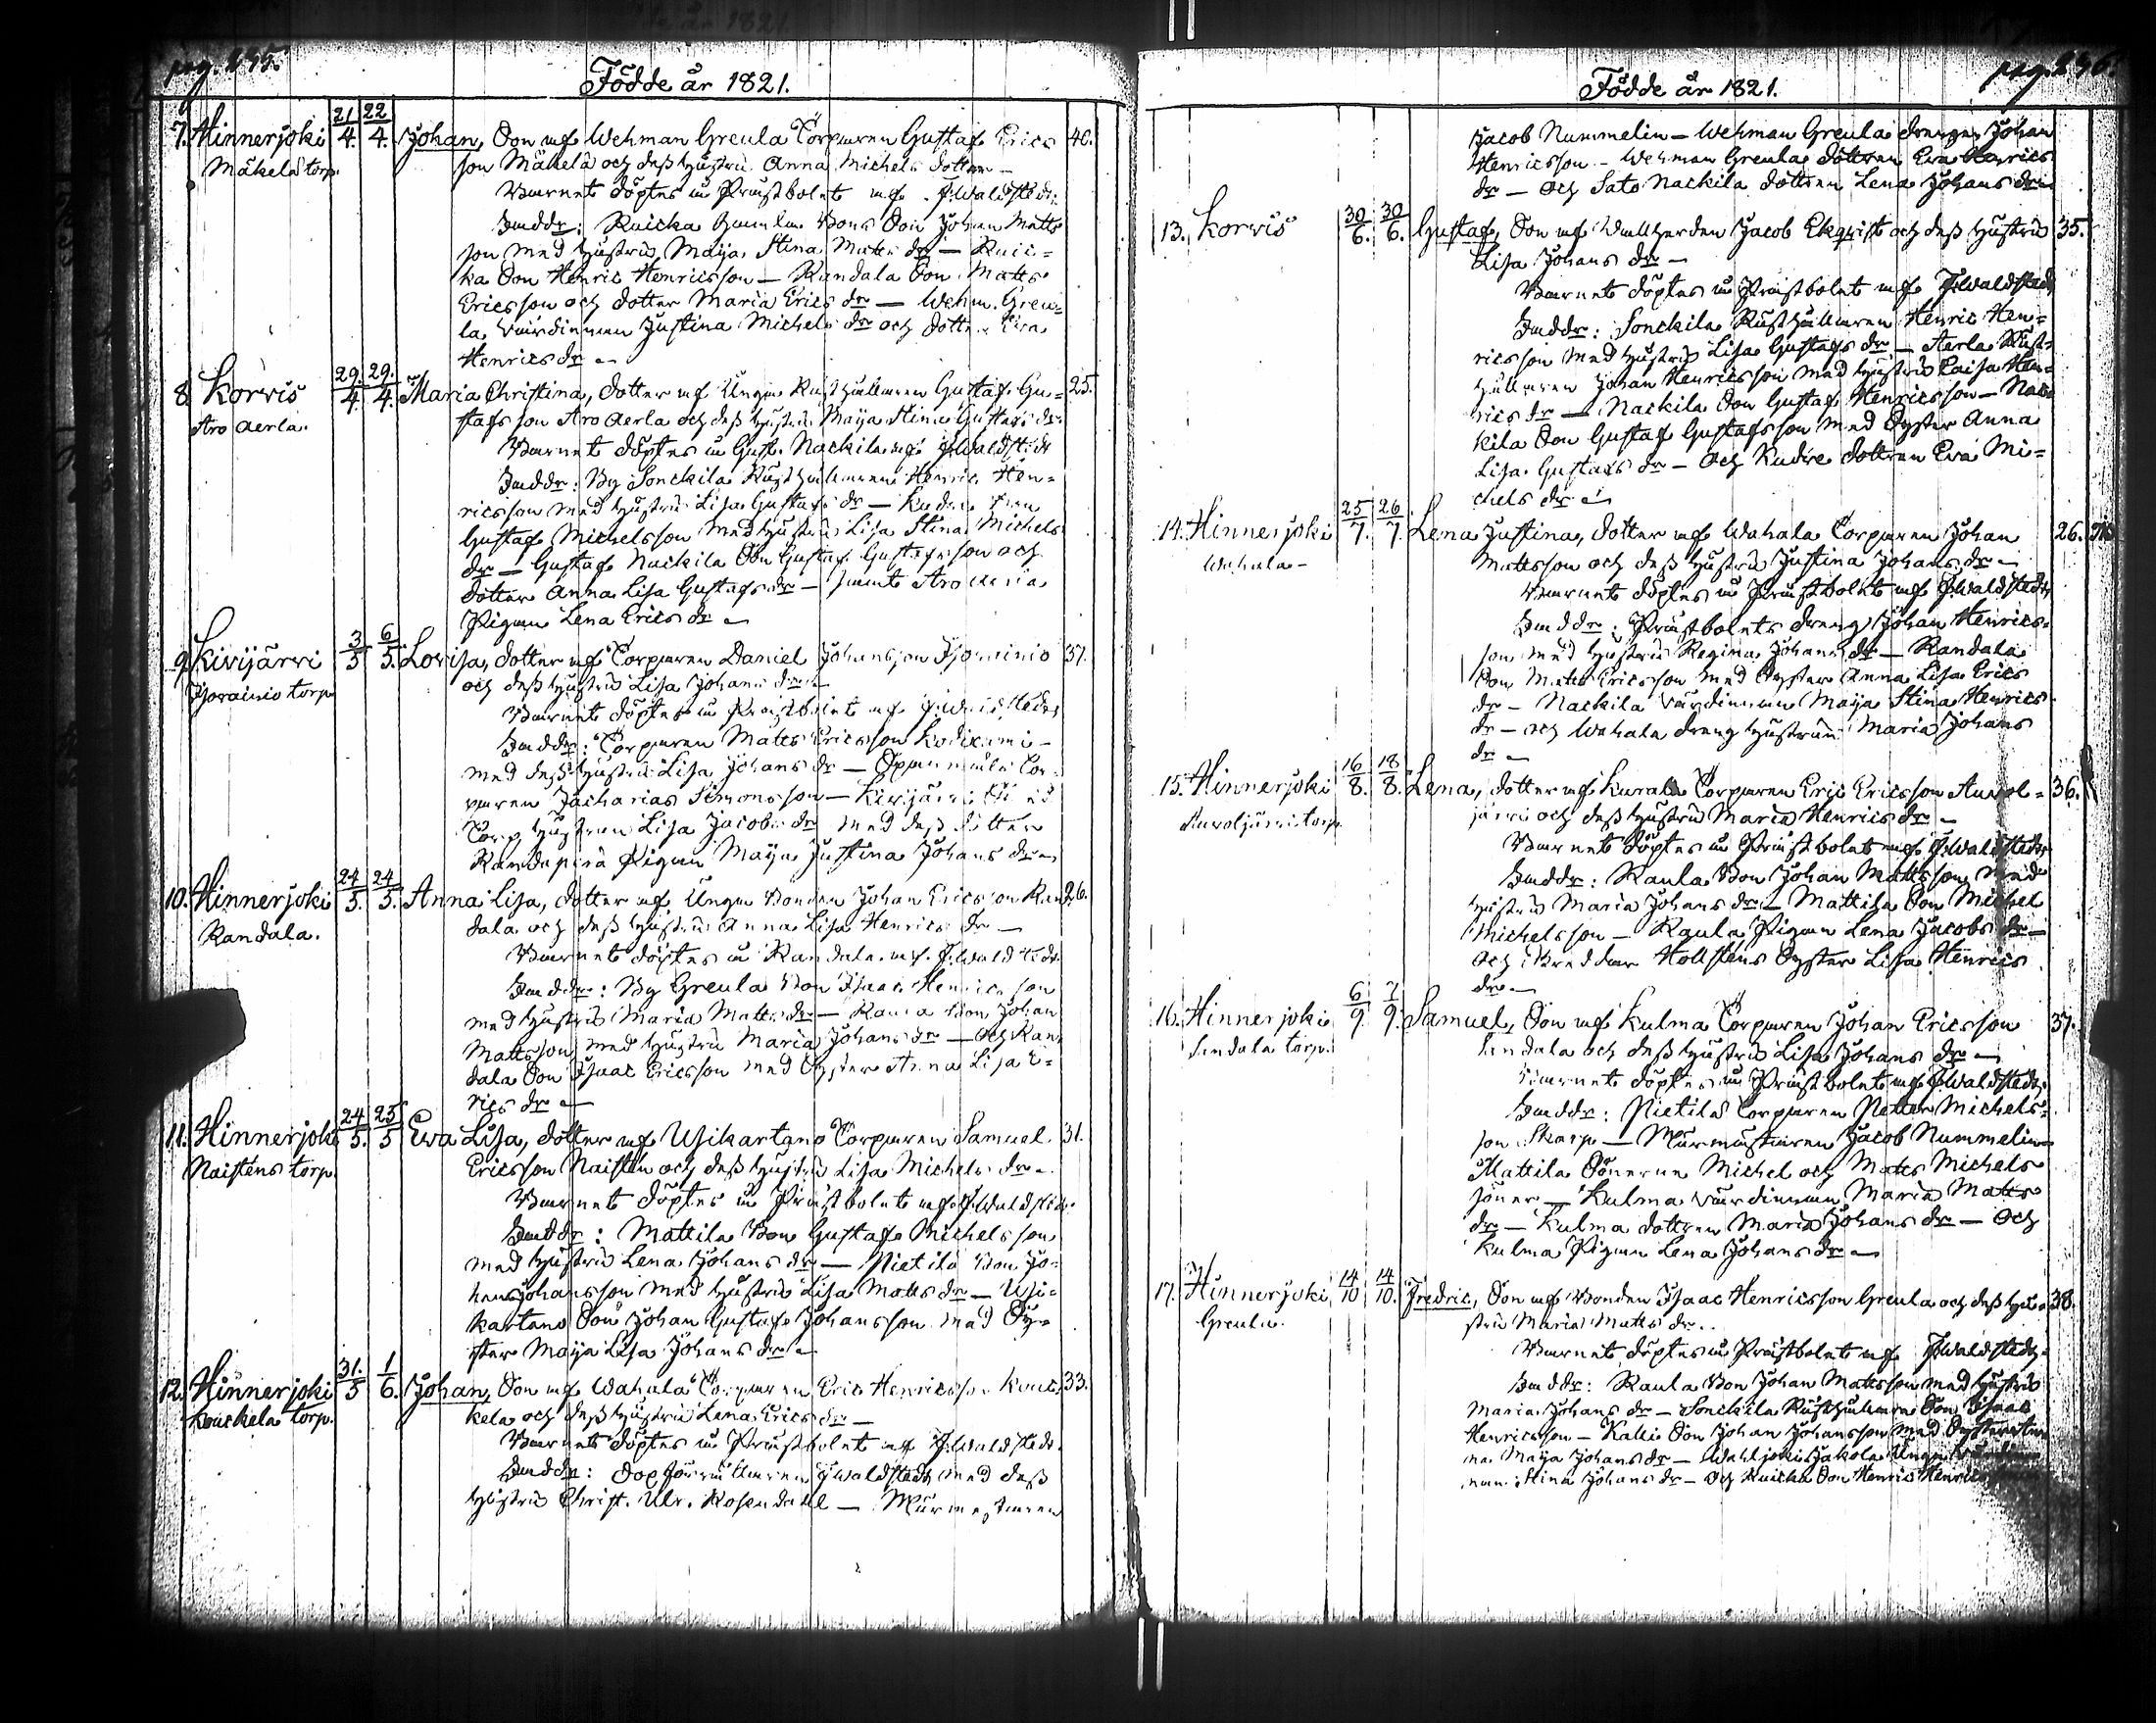 pag. 295.
Födde år 1821.
7. Hinnerjoki 21/4. 22/4. Johan, Son af Wehman Greula Torparen Gustaf Erics 40.
Mäkelä torp. son Mäkelä och dess hustru Anna Michels dotter –
Barnet döptes i Prästbolet af F. Waldstedt.
Faddr: Ruicka Gamla Bons Son Johan Matts
son med hustru Maja Stina Matts dr – Ruic=
ka Son Henric Henricsson – Randala Son Matts
Ericsson och dotter Maria Erics dr – Wehm. Greu=
la Värdinnan Justina Michels dr och dotter Eva
Henrics dr –
8. Korvis 29./4. 29./4. Maria Christina, dotter af Unga Rusthållaren Gustaf Gu= 25.
Aro Aerla. stafsson Aro Aerla och dess hustru Maja Stina Gustafs dr.
Barnet döptes i Gust. Nackila af F. Waldstedt
Faddr: By Sonckila Rusthållaren Henric Hen=
ricsson med hustru Lisa Gustafs dr –
Gustaf Michelsson med hustru Lisa Stina Michels
dr – Gustaf Nackila Son Gustaf Gustafsson och
dotter Anna Lisa Gustafs dr – samt Aro Aerla
Pigan Lena Erics dr –
9. Kivijärvi 3/5 6/5. Lovisa, dotter af Torparen Daniel Johansson Isorainio 37.
Isorainio torp och dess hustru Lisa Johans dr –
Barnet döptes i Prästbolet af F. Waldstedt
Faddr: Torparen Matts Ericsson
med dess hustru Lisa Johans dr – Tor=
paren Zacharias Simonsson – Kivijärvi
Torp hustrun Lisa Jacobs dr med dess dotter
Pigan Maja Justina Johans dr –
10. Hinnerjoki 24/5. 24/5. Anna Lisa, dotter af Unga Bonden Johan Ericsson Ran= 26.
Randala. dala och dess hustru Anna Lisa Henrics dr –
Barnet döptes i Randala af F. Waldstedt.
Faddr: By Greula Bon Isaac Henricsson
med hustru Maria Matts dr – Raula Bon Johan
Mattsson med hustru Maria Johans dr – och Ran=
dala Son Isaac Ericsson med Syster Anna Lisa E=
rics dr –
11. Hinnerjoki 24/5. 25/5 Eva Lisa, dotter af Usikartano Torparen Samuel 31.
Naistens torp. Ericsson Naisten och dess hustru Lisa Michels dr –
Barnet döptes i Prästbolet af F. Waldstedt.
Faddr: Mattila Bon Gustaf Michelsson
med hustru Lena Johans dr – Pietilä Bon Jo=
hansson med hustru Lisa Matts dr – Usi=
kartano Son Johan Gustaf Johansson med Sy=
ster Maja Lisa Johans dr –
12. Hinnerjoki 31./5 1/6. Johan, Son af Wahala Torparen Eric Henricsson Kouc= 33.
Kouckela torp. kela och dess hustru Lena Erics dr –
Barnet döptes i Prästbolet af F. Waldstedt.
Faddr: Dopförrättaren F. Waldstedt med dess
hustru Christ. Ulr. Rosendahl – Murmestaren
pag. 296.
Födde år 1821.
Jacob Nummelin – Wehman Greula drengen Johan
Henricsson – Wehman Greula dottren Eva Henrics
dr – och Sato Nackila dottren Lena Johans dr –
13. Korvis 30/6. 30/6. Gustaf, Son af Vallherden Jacob Ekqvist och dess hustru 35.
Lisa Johans dr –
Barnet döptes i Prästbolet af F. Waldstedt
Faddr: Sonckila Rusthållaren Henric Hen=
ricsson med hustru Lisa Gustafs dr – Aerla Rust=
hållaren Johan Henricsson med hustru Caisa Hen=
rics dr – Nackila Son Gustaf Henricsson – Nac=
kila Son Gustaf Gustafsson med Syster Anna
Lisa Gustafs dr – och dottren Eva Mi=
chels dr –
14. Hinnerjoki 25/7. 26/7 Lena Justina, dotter af Wahala Torparen Johan 26.
Wahala – Mattsson och dess hustru Justina Johans dr –
Barnet döptes i Prästbolet af F. Waldstedt
Faddr: Prästbolets dreng Johan Henrics=
son med hustru Regina Johans dr – Randala
Son Matts Ericsson med Syster Anna Lisa Erics
dr – Nackila värdinnan Maja Stina Henrics
dr – och Wahala dreng hustrun Maria Johans
dr –
15. Hinnerjoki 16/8. 18/8. Lena, dotter af Kurala Torparen Eric Ericsson Auvol= 36.
Auvoljärvi torp. järvi och dess hustru Maria Henrics dr –
Barnet döptes i Prästbolet af F. Waldstedt
Faddr: Raula Bon Johan Mattsson med
hustru Maria Johans dr – Mattila Son Michel
Michelsson – Raula Pigan Lena Jacobs dr –
och Hollstens Syster Lisa Henrics
dr –
16. Hinnerjoki 6/9 7/9. Samuel, Son af Kulma Torparen Johan Ericsson 37.
Sandala torp. Sandala och dess hustru Lisa Johans dr –
Barnet döptes i Prästbolet af F. Waldstedt.
Faddr: Pietilä Torparen Petter Michels=
son Skarp – Murmästaren Jacob Nummelin
Mattila Sönerne Michel och Matts Michels
söner – Kulma värdinnan Maria Matts
dr – Kulma dottren Maria Johans dr – och
Kulma Pigan Lena Johans dr –
17. Hinnerjoki 14/10 14/10. Fredric, Son af Bonden Isaac Henricsson Greula och dess hu= 38.
Greula. stru Maria Matts dr.
Barnet döptes i Prästbolet af F. Waldstedt.
Faddr: Raula Bon Johan Mattsson med hustru
Maria Johans dr – Sonckila Rusthållare Son Isaac
Henricsson – Kalli Son Johan Johansson med
Maja Johans dr – Unga
nan Stina Johans dr – och Ruicka Son Henric Henrics